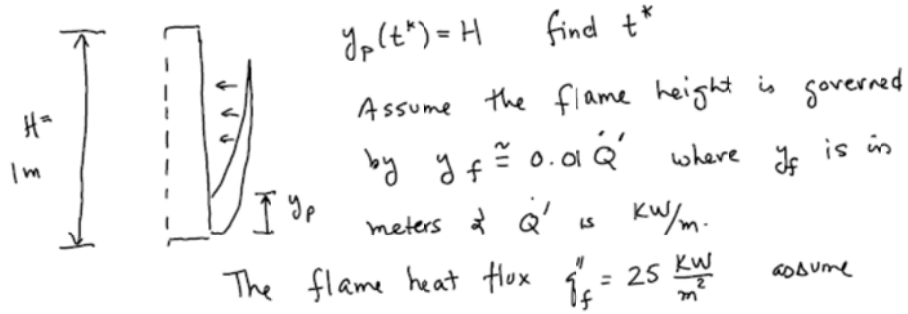 y_p(t*) = H find t*
Assume the flame height is governed
H =
1m
by y_f ≅ 0.01 Q̇' where y_f is in
y_p
meters & Q̇' is KW/m.
The flame heat flux q̇"_f = 25 KW/m² assume